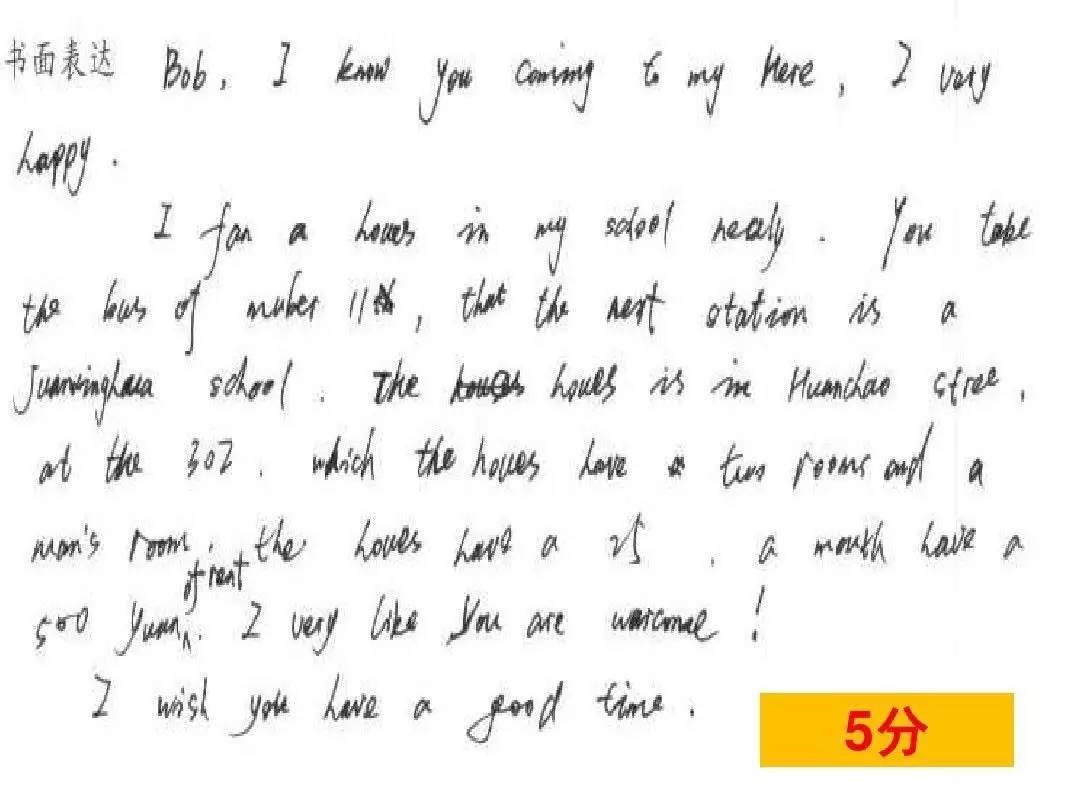 书面表达 Bob, I know you coming to my Here, I very
happy.
I fan a houes in my school nealy. You take
the bus of nuber 11th, that the next station is a
Juanxinghua school. The houes is in Huanchao stree,
at the 302. which the houes have a two rooms and a
man's room. the houes have a 25 . a mouth have a
of rent
500 yuan. I very like you are warcome!
I wish you have a good time.
5分